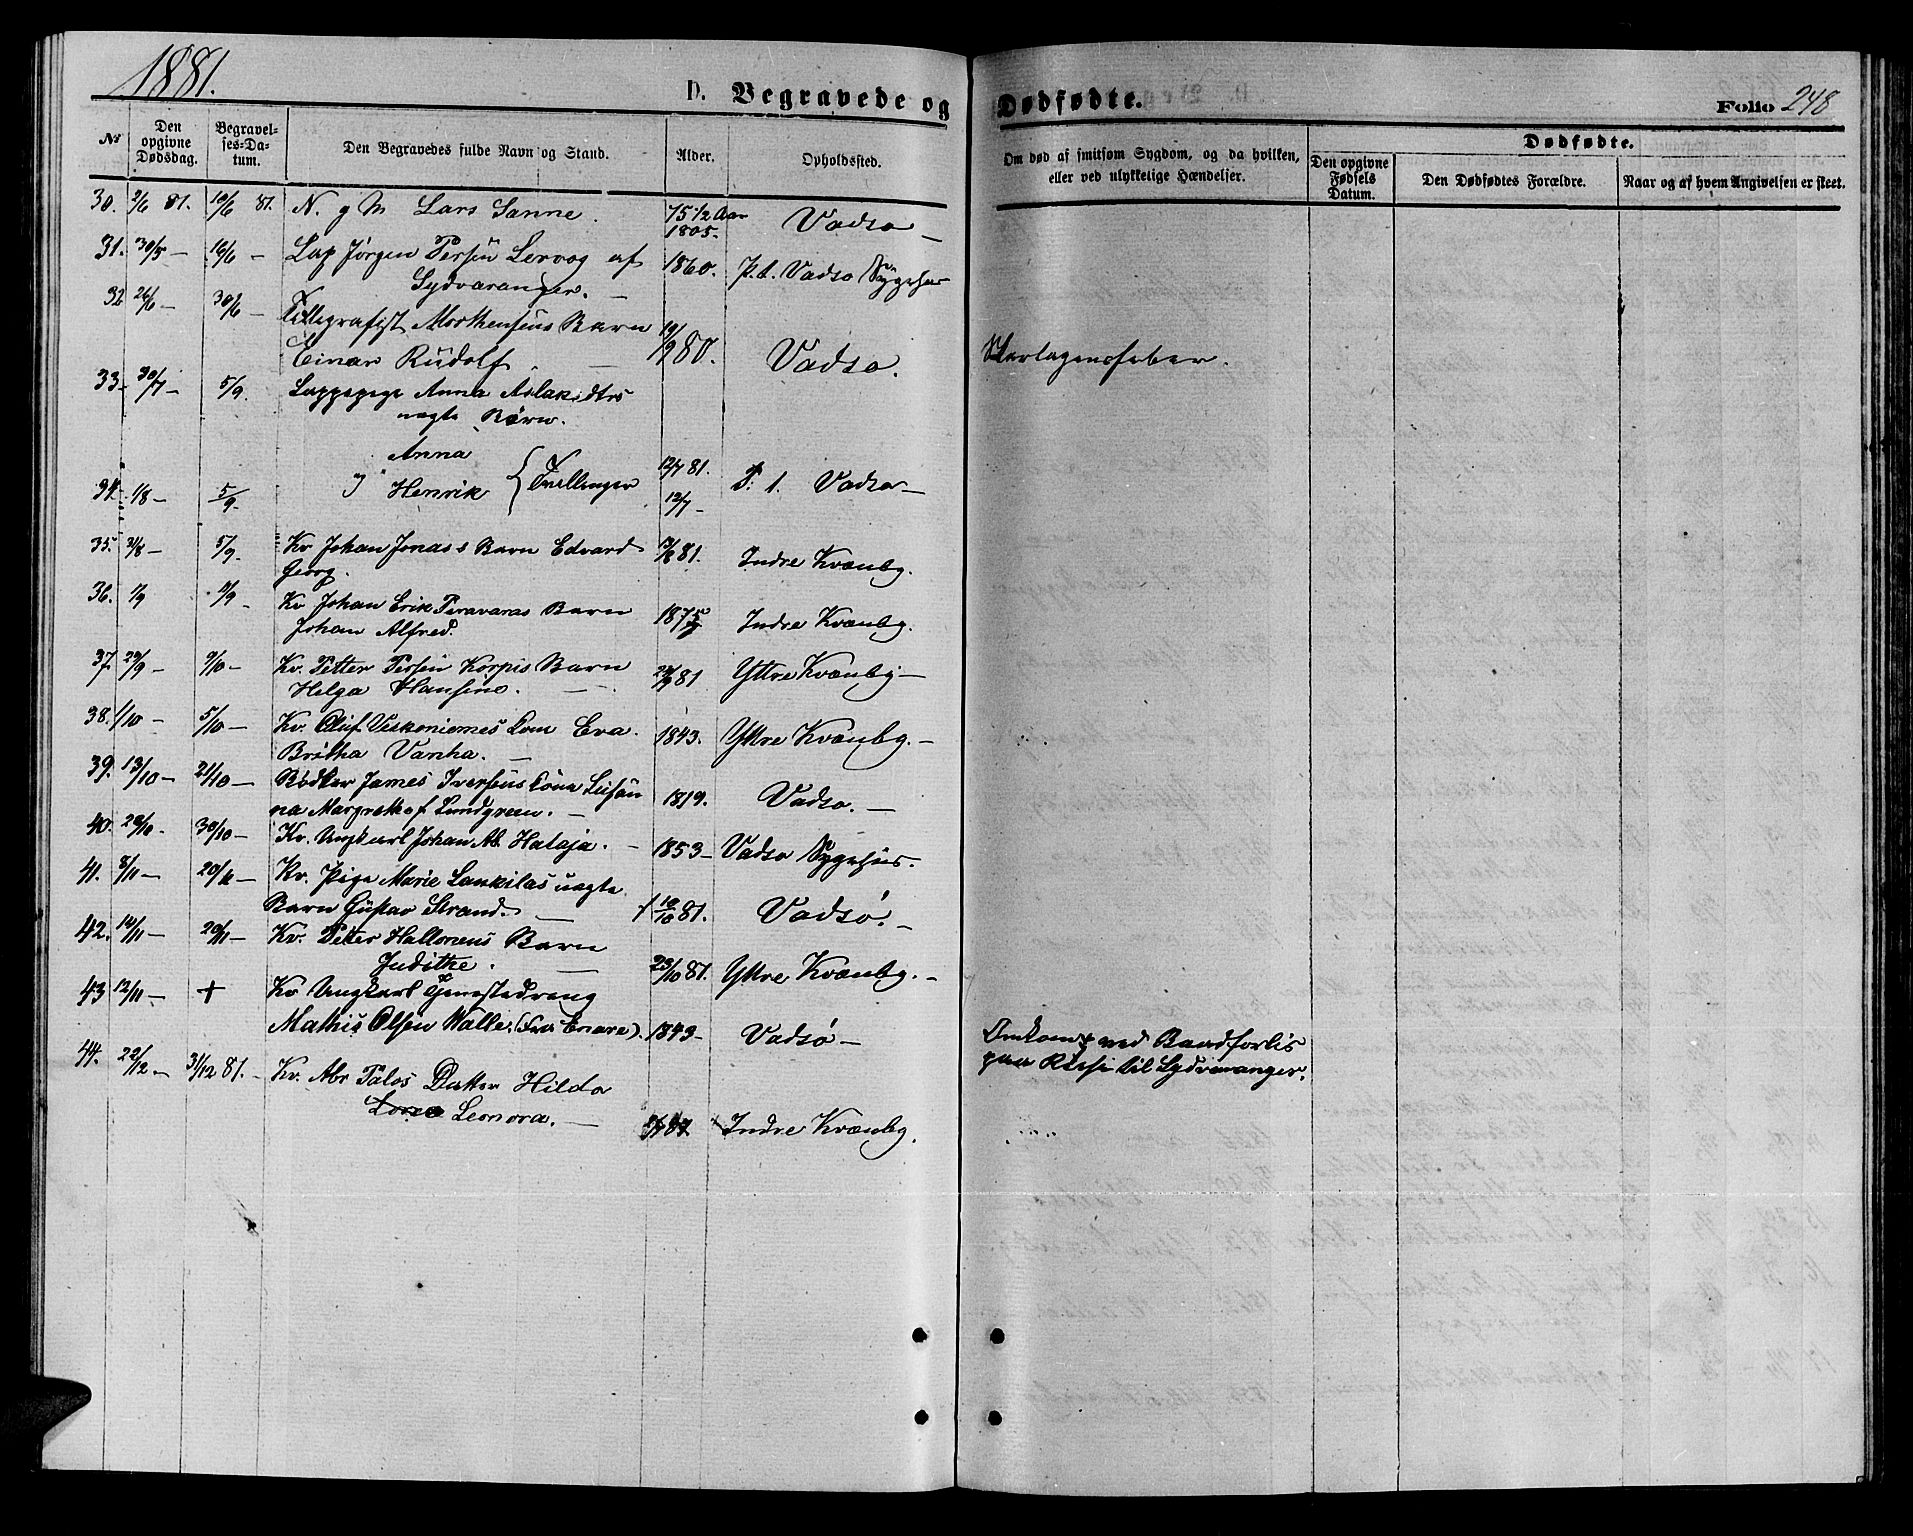 1881.
D. Begravede og
Dødfødte.
Folio 248
No
Den opgivne Dødsdag.
Begravelses-Datum.
Den Begravedes fulde Navn og Stand.
Alder.
Opholdssted.
Om død af smitsom Sygdom, og da hvilken, eller ved ulykkelige Hændelser.
Dødfødte.
Den opgivne Fødsels Datum.
Den Dødfødtes Forældre.
Naar og af hvem Angivelsen er skeet.
30. 2/6 81. 10/6 81. N. g M Lars Sanne. 75 1/2 Aar Vadsø —
1805.
31. 30/5 — 16/6 — Lap Jørgen Persen af 1860. p.t. Vadsø Sygehus
Sydvaranger. —
32 26/6 — 30/6 — Telegrafist Morthensens Barn
Einar Rudolf. — 19/9 80. Vadsø. Skarlagensfeber.
33 — 30/7 — 5/9. Lappepige Anna Aslaksdtrs
uægte Børn.
Anna 12/7 81.
34. 1/8 — 5/9. og Henrik { Tvillinger 12/7 — Vadsø —
35. 3/8 — 5/9. Kv Johan Jonas's Barn Edvard 81. Indre Kvænbg.
Georg.
36. 1/9 4/9 — Kv Johan Erik Peravaras Barn
Johan Alfred. 1875 Indre Kvænbg.
37. 29/9 — 9/10 — Kv. Petter Persen Korpis Barn 81 Yttre Kvænbg —
Helga Hansine. —
38. 1/10 — 5/10 — Kv. Oluf Kone Eva
Britha Vanha. — 1843. Yttre Kvænbg. —
39. 13/10 — 21/10 — Bødker James Iversens Kone Susan
na Margreth f. Lundgreen. — 1819. Vadsø. —
40. 28/10. 30/10 — Kv. Ungkarl Johan Ab. Halaja. — 1853 — Vadsø Sygehus.
41. 8/11 — 20/11 — Kv. Pige Marie Lankilas uægte
Barn Gustav Strand. — 10/10 81. Vadsø. —
42. 14/11 — 20/11 — Kv. Petter Hallonens Barn
Judithe. — 23/10 81. Yttre Kvænbg. —
43 12/11 — + Kv Ungkarl Tjenestedreng
Mathis Olsen Walle. (Fra Enare). 1843 — Vadsø — Omkom ved Baadforlis
paa Reise til Sydvaranger.
44. 22/12 — 31/12 81. — Kv. Abr Palos Datter Hilda
Leonora. — Indre Kvænbg.